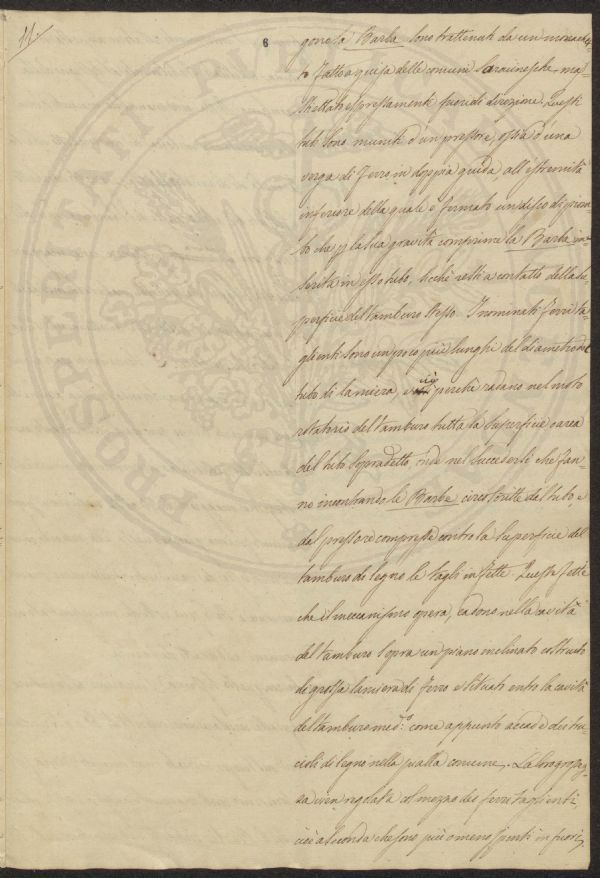 11.
6
gono la Barba sono trattenuti da un monachet
to fatto a guisa delle comuni Saracinesche, ma
 espressamente fuori di direzione. Questi
tubi sono muniti d'un pressore, ossia d'una
verga di ferro in doppia guida all'estremità
inferiore della quale è fermato un disco di piom-
bo che p la sua gravità comprime la Barba in-
serita in esso tubo, sicchè resti a contatto della su-
perficie del tamburo stesso. I nominati ferri ta-
glienti sono un poco più lunghi del diametro del
tubo di lamiera, ciò perchè radano nel moto
rotatorio del tamburo tutta la superficie o area
del tubo sopradetto onde nel succedersi che fan-
no incontrando le Barbe circoscritte dal tubo, e
dal pressore compresse contro la superficie del
tamburo di legno le tagli in fette. Queste fette
che il meccanismo opera, cadono nella cavità
del tamburo sopra un piano inclinato costruito
di grossa lamiera di ferro e situati entro la cavità
del tamburo med.o come appunto accade dei tru-
cioli di legno nella pialla comune. La grossez-
za vien regolata col mezzo dei ferri taglienti
cioè a seconda che sono più o meno spinti in fuori,